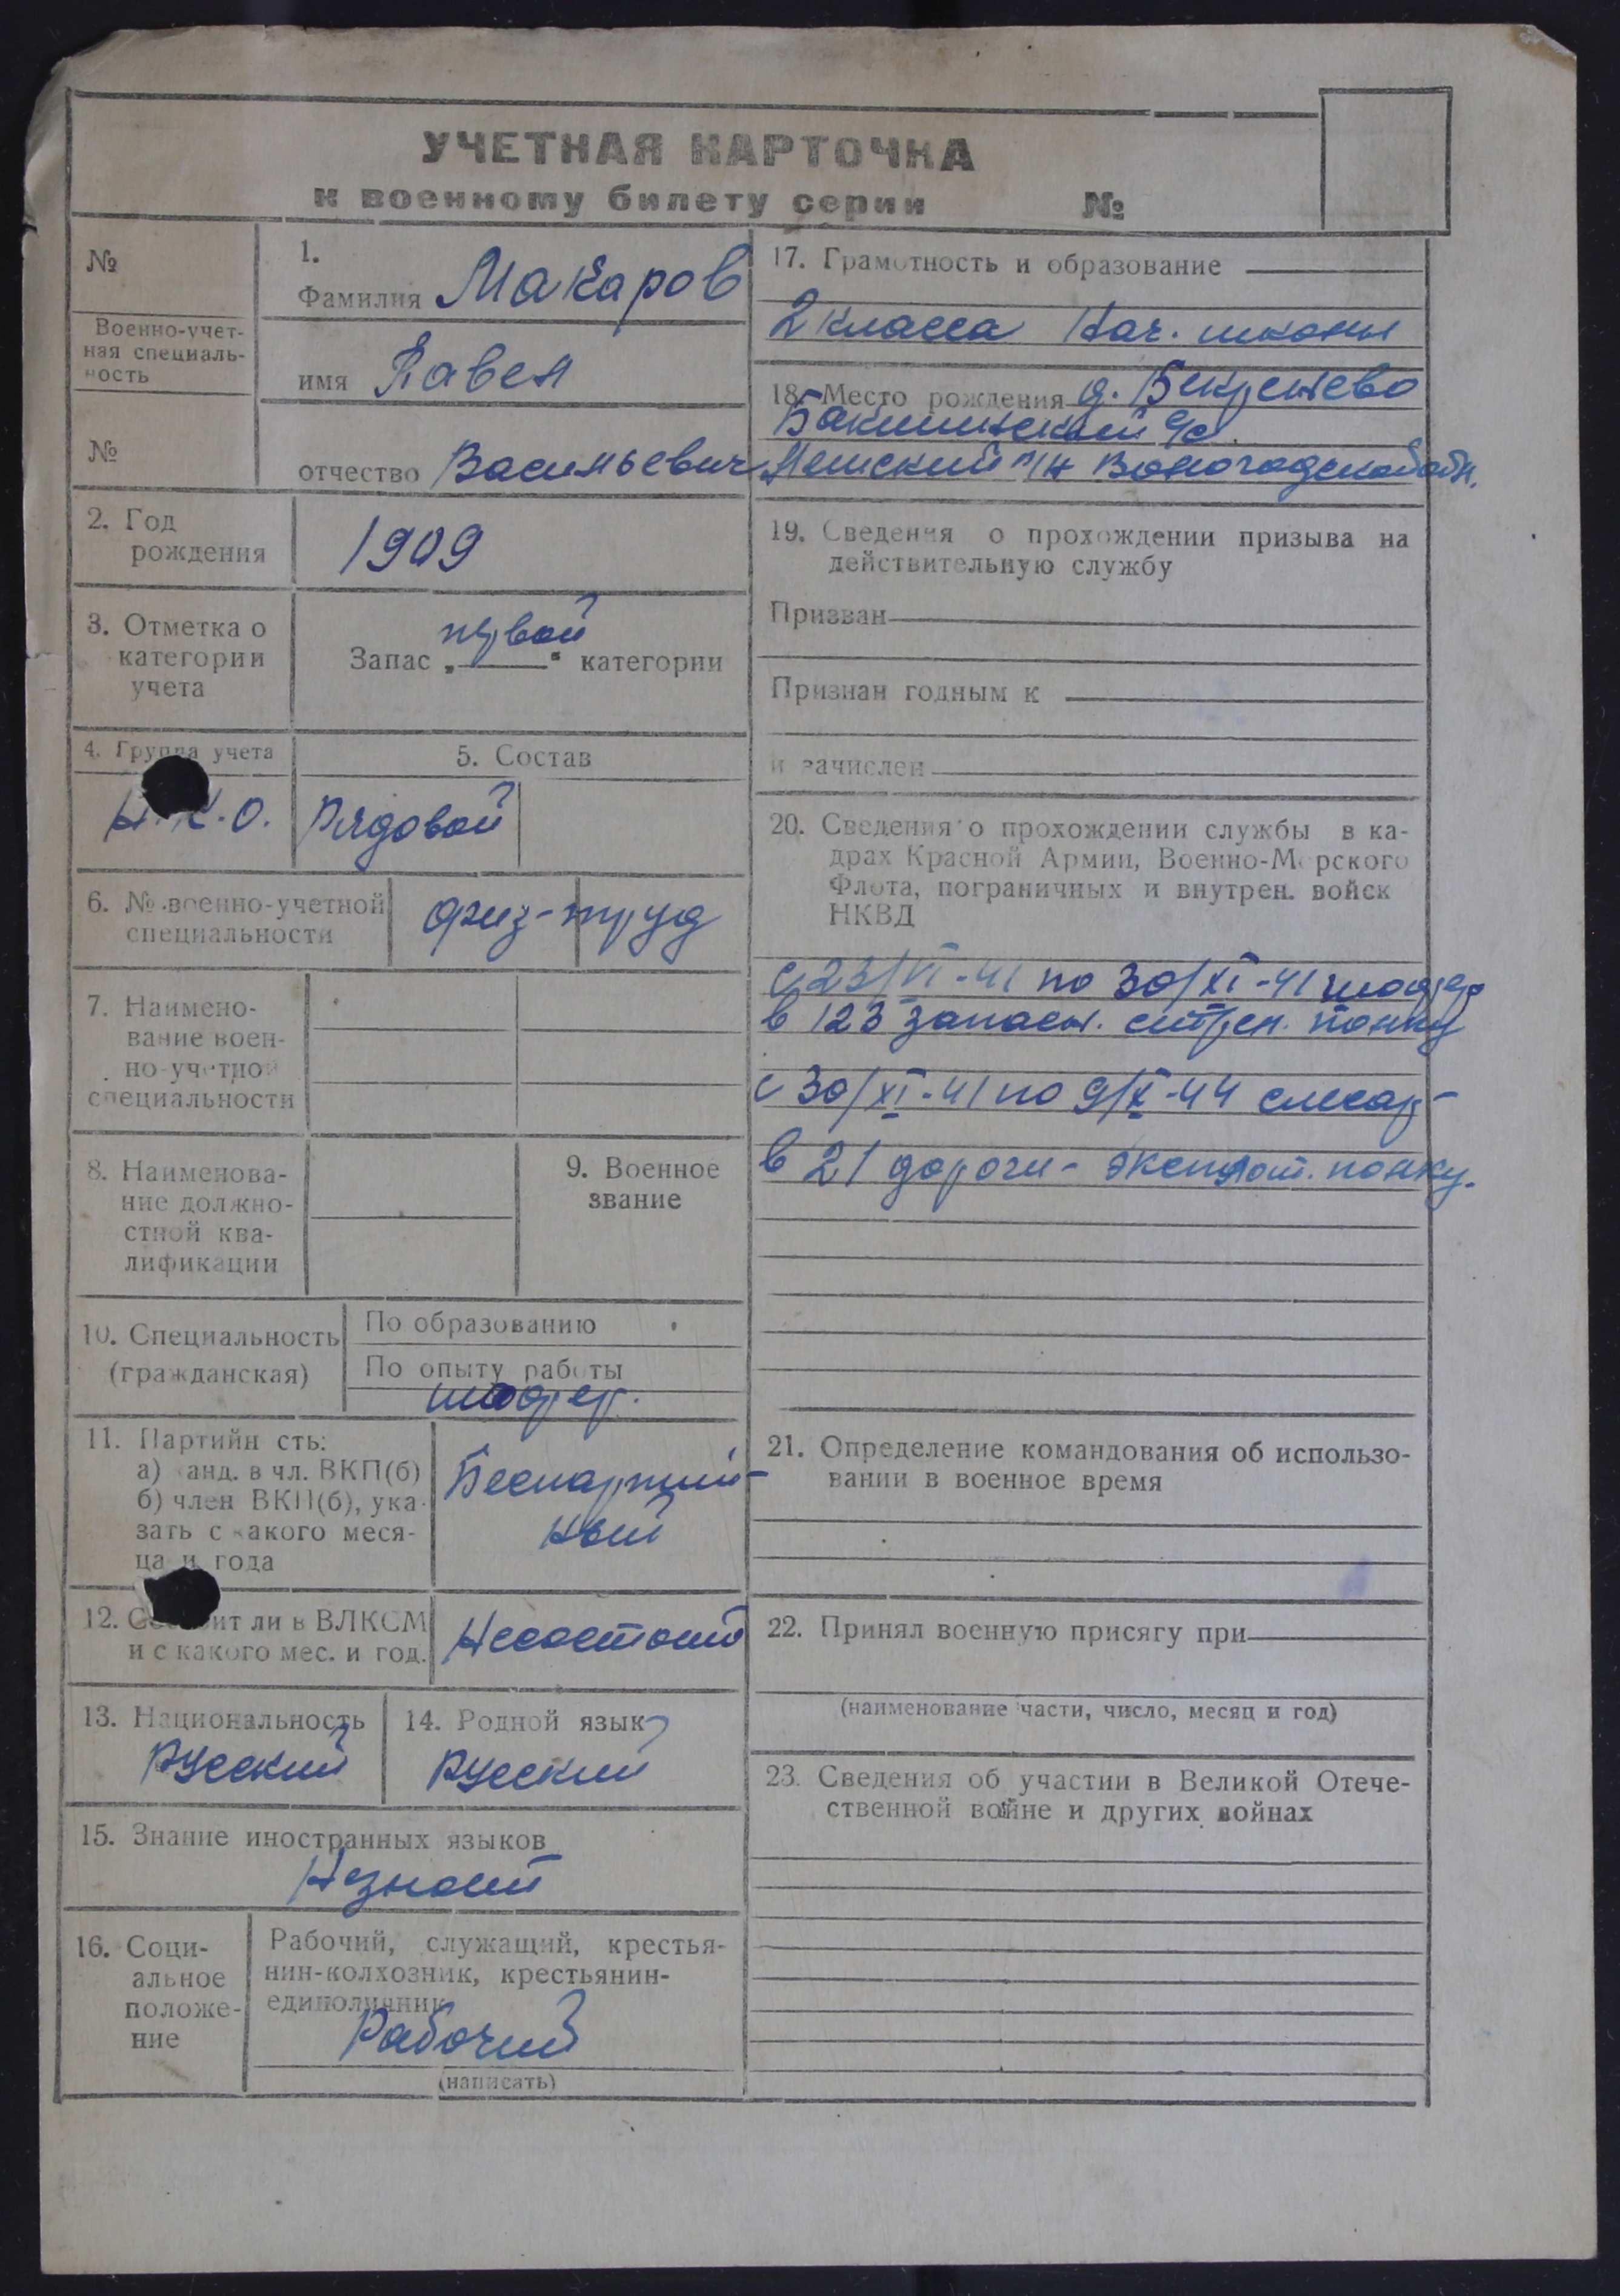 УЧЕТНАЯ КАРТОЧКА
к военному билету серии №
№
Военно-учет-
ная специаль-
ность
№
1.
Фамилия Макаров
имя Павел
отчество Васильевич
2. Год
рождения
1909
3. Отметка о
категории
учета
первой
Запас „ “ категории
4. Группа учета
Н.К.О.
5. Состав
Рядовой
6. № военно-учетной
специальности
физ-труд
7. Наимено-
вание воен-
но-учетной
специальности
8. Наименова-
ние должно-
стной ква-
лификации
9. Военное
звание
10. Специальность
(гражданская)
По образованию
По опыту работы
шофер.
11. Партийн сть:
а) канд. в чл. ВКП(б)
б) член ВКП(б), ука-
зать с какого меся-
ца и года
Беспартий-
ный
12. Состоит ли в ВЛКСМ
и с какого мес. и год.
Несостоит
13. Национальность
Русский
14. Родной язык
Русский
15. Знание иностранных языков
Незнает
16. Соци-
альное
положе-
ние
Рабочий, служащий, крестья-
нин-колхозник, крестьянин-
единоличник
Рабочий
(написать)
17. Грамотность и образование
2 класса Нач. школы
18. Место рождения д. Бекренево
с/с
р/н Вологодской обл.
19. Сведения о прохождении призыва на
действительную службу
Призван
Признан годным к
и зачислен
20. Сведения о прохождении службы в ка-
драх Красной Армии, Военно-Морского
Флота, пограничных и внутрен. войск
НКВД
с 23/VI-41 по 30/XI-41 шофер
в 123 запасн. стрел. полку
с 30/XI-41 по 9/X-44 слесар-
в 21 дорожн- эксплоат. полку.
21. Определение командования об использо-
вании в военное время
22. Принял военную присягу при
(наименование части, число, месяц и год)
23. Сведения об участии в Великой Отече-
ственной войне и других войнах